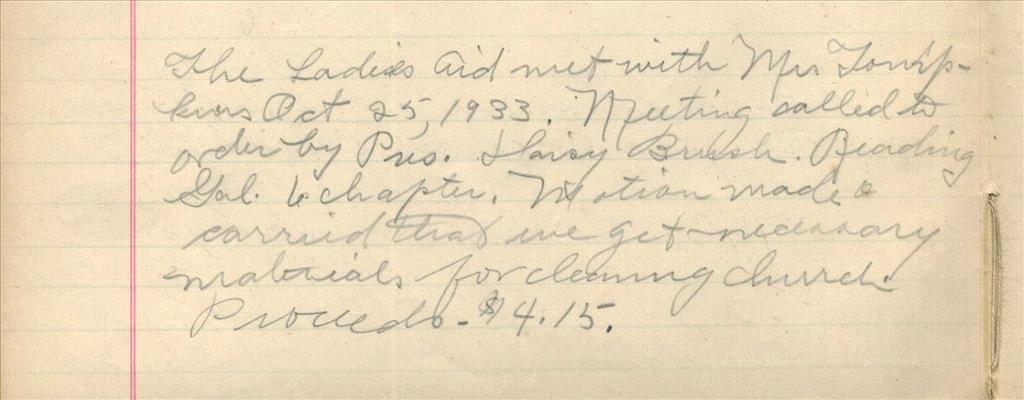 The Ladies Aid met with Mrs Tomp-
kins Oct 25, 1933. Meeting called to
order by Pres. Daisy Brush. Reading
Gal. 6 chapter. Motion made &
carried that we get necessary
materials for cleaning church.
Proceeds - $4.15.